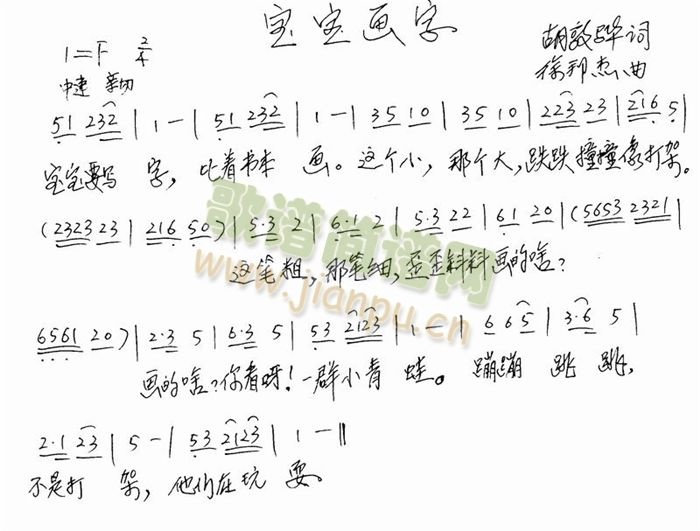 宝宝画字
1=F 2/4
中速 亲切
胡敦骅词
徐邦杰曲
51 232 | 1 - | 51 232 | 1 - | 35 10 | 35 10 | 223 23 | 216 5 |
宝宝要写 字，比着书本 画。这个小，那个大，跌跌撞撞像打架。
(2323 23 | 216 50) | 5·3 2 | 6·1 2 | 5·3 22 | 61 20 | (5653 2321 |
这笔粗，那笔细，歪歪料料画的啥？
6561 20) | 2·3 5 | 6·3 5 | 53 2123 | 1 - | 6 65 | 3·6 5 |
画的啥？你看呀！一群小青 蛙。 蹦蹦 跳 跳，
2·1 23 | 5 - | 53 2123 | 1 - ‖
不是打 架，他们在玩 耍。
歌谱简谱网
www.jianpu.cn